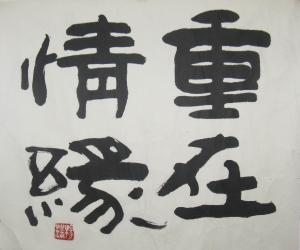 重在
情緣